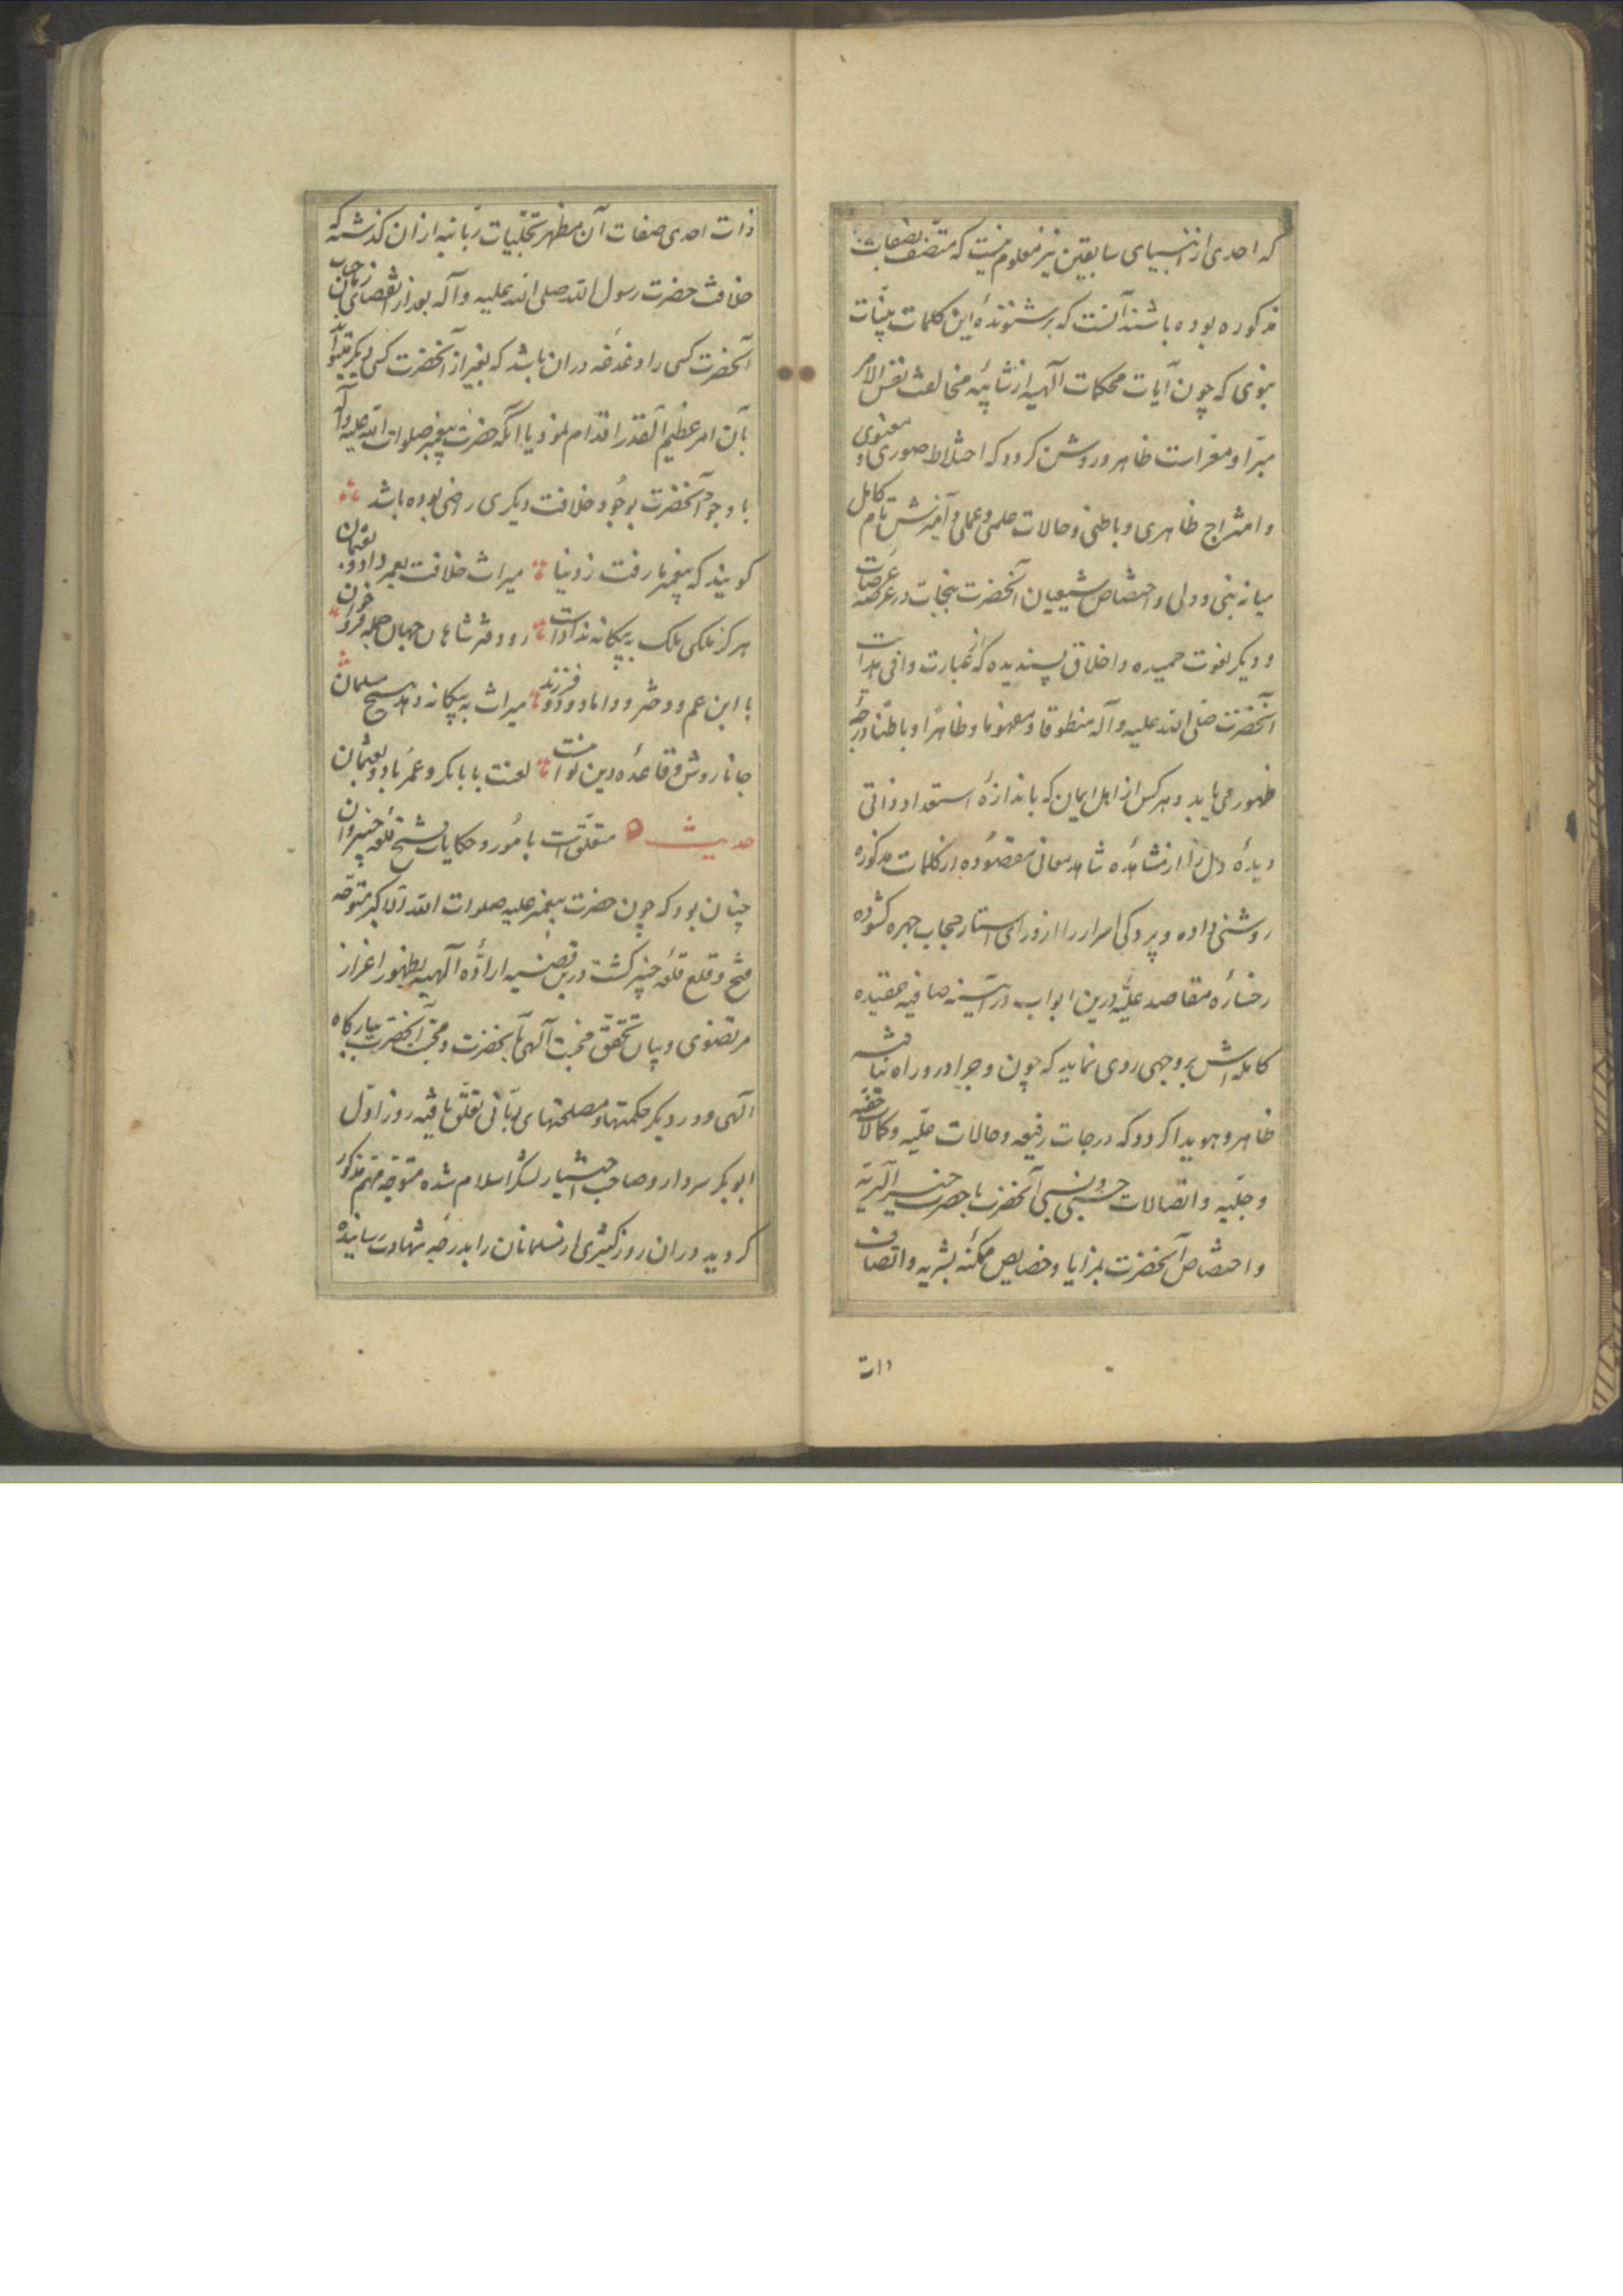 که احدی از انبیای سابقین نیز معلوم نیست که متصف بصفات
مذکوره بوده باشند آنست که بر شنونده این کلمات بینات
نبوی که چون آیات محکمات آلهیه از شائبه مخالفت نفس الامر
مبرا و معراست ظاهر و روشن کردد که اختلاط صوری و معنوی
و امتزاج ظاهری و باطنی و حالات علمی و عملی و آمیزش تام کامل
میانه نبی و ولی و اختصاص شیعیان آنحضرت بنجات در عرصه عرصات
و دیکر نعوت حمیده و اخلاق پسندیده که از عبارت وافی هدایت
آنحضرت صلی الله علیه و آله منطوقا و مفهوما و ظاهرا و باطنا درجه
ظهور می یابد و هر کس از اهل ایمان که باندازه استعداد ذاتی
دیده دل را از مشاهده شاهد معانی مقصوده از کلمات مذکوره
روشنی داده و پردکی اسرار را از ورای استار حجاب چهره کشوده
رخساره مقاصد علیه درین ابواب در آیینه صافیه عقیده
کامله اش بر وجهی روی نماید که چون و چرا در و راه نیافته
ظاهر و هویدا کردد که درجات رفیعه و حالات علیه و کمالات خفیه
و جلیه و اتصالات حسبی و نسبی آنحضرت با حضرت خیر البریه
و اختصاص آنحضرت بمزایا و خصایص ممکنه بشریه و اتصاف
ذات
ذات احدی صفات آن مظهر تجلیات ربانیه از ان کذشته که
خلافت حضرت رسول الله صلی الله علیه و آله بعد از انقضای زمان
آنحضرت کسی را دغدغه دران باشد که بغیر از آنحضرت کسی دیکر تواند
بآن امر عظیم القدر اقدام نمود یا آنکه حضرت پیغمبر صلوات الله علیه و آله
با وجود آنحضرت بوجود خلافت دیکری راضی بوده باشد
کویند که پیغمبر ما رفت ز دنیا میراث خلافت بعمر داد و بعثمان
هرکز ملکی ملک به بیکانه نداداست رو دفتر شاهان جهان جمله فرو خوان
با ابن عم و دختر و داماد و دو فرزند میراث به بیکانه دهد هیچ مسلمان
جانا روش و قاعده دین تو انست لعنت بابابکر و عمر باد و بعثمان
حدیث متعلق است بامور و حکایات فتح قلعه خیبر و آن
چنان بود که چون حضرت پیغمبر علیه صلوات الله الاکبر متوجه
فتح و قلع قلعه خیبر کشت درین قضیه اراده آلهیه بظهور اعزاز
مرتضوی و بیان تحقق محبت آلهی بآنحضرت و محبت آنحضرت ببارکاه
الهی و در دیکر حکمتها و مصلحتهای ربانی تعلق یافته روز اول
ابوبکر سردار و صاحب اختیار لشکر اسلام شده متوجه مهم مذکور
کردید و دران روز کثیری از مسلمانان را بدرجه شهادت رسانیده